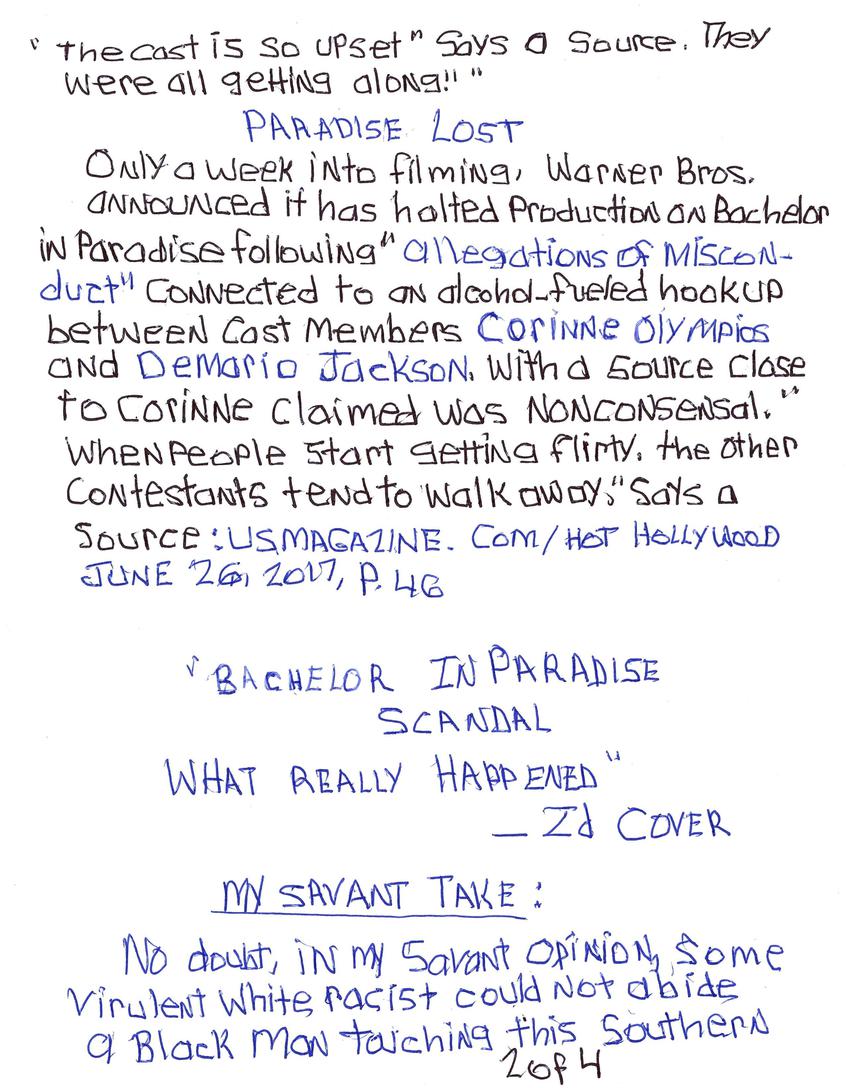 " The cast is so upset" Says a Source. They
were all getting along!! "
PARADISE LOST
Only a week into filming, Warner Bros.
announced it has halted Production on Bachelor
in Paradise following "allegations of Miscon-
duct" Connected to an alcohol-fueled hookup
between Cast Members Corinne Olympios
and Demario Jackson. With a source close
to Corinne claimed was NONCONSENSAL. "
When People start getting flirty, the other
Contestants tend to walk away," Says a
Source: USMAGAZINE. Com/HOT HOLLYWOOD
JUNE 26, 2017, P. 46
" BACHELOR IN PARADISE
SCANDAL
WHAT REALLY HAPPENED "
— Id COVER
MY SAVANT TAKE:
No doubt, in my Savant Opinion, Some
Virulent White racist could not abide
a Black Man touching this Southern
2 of 4